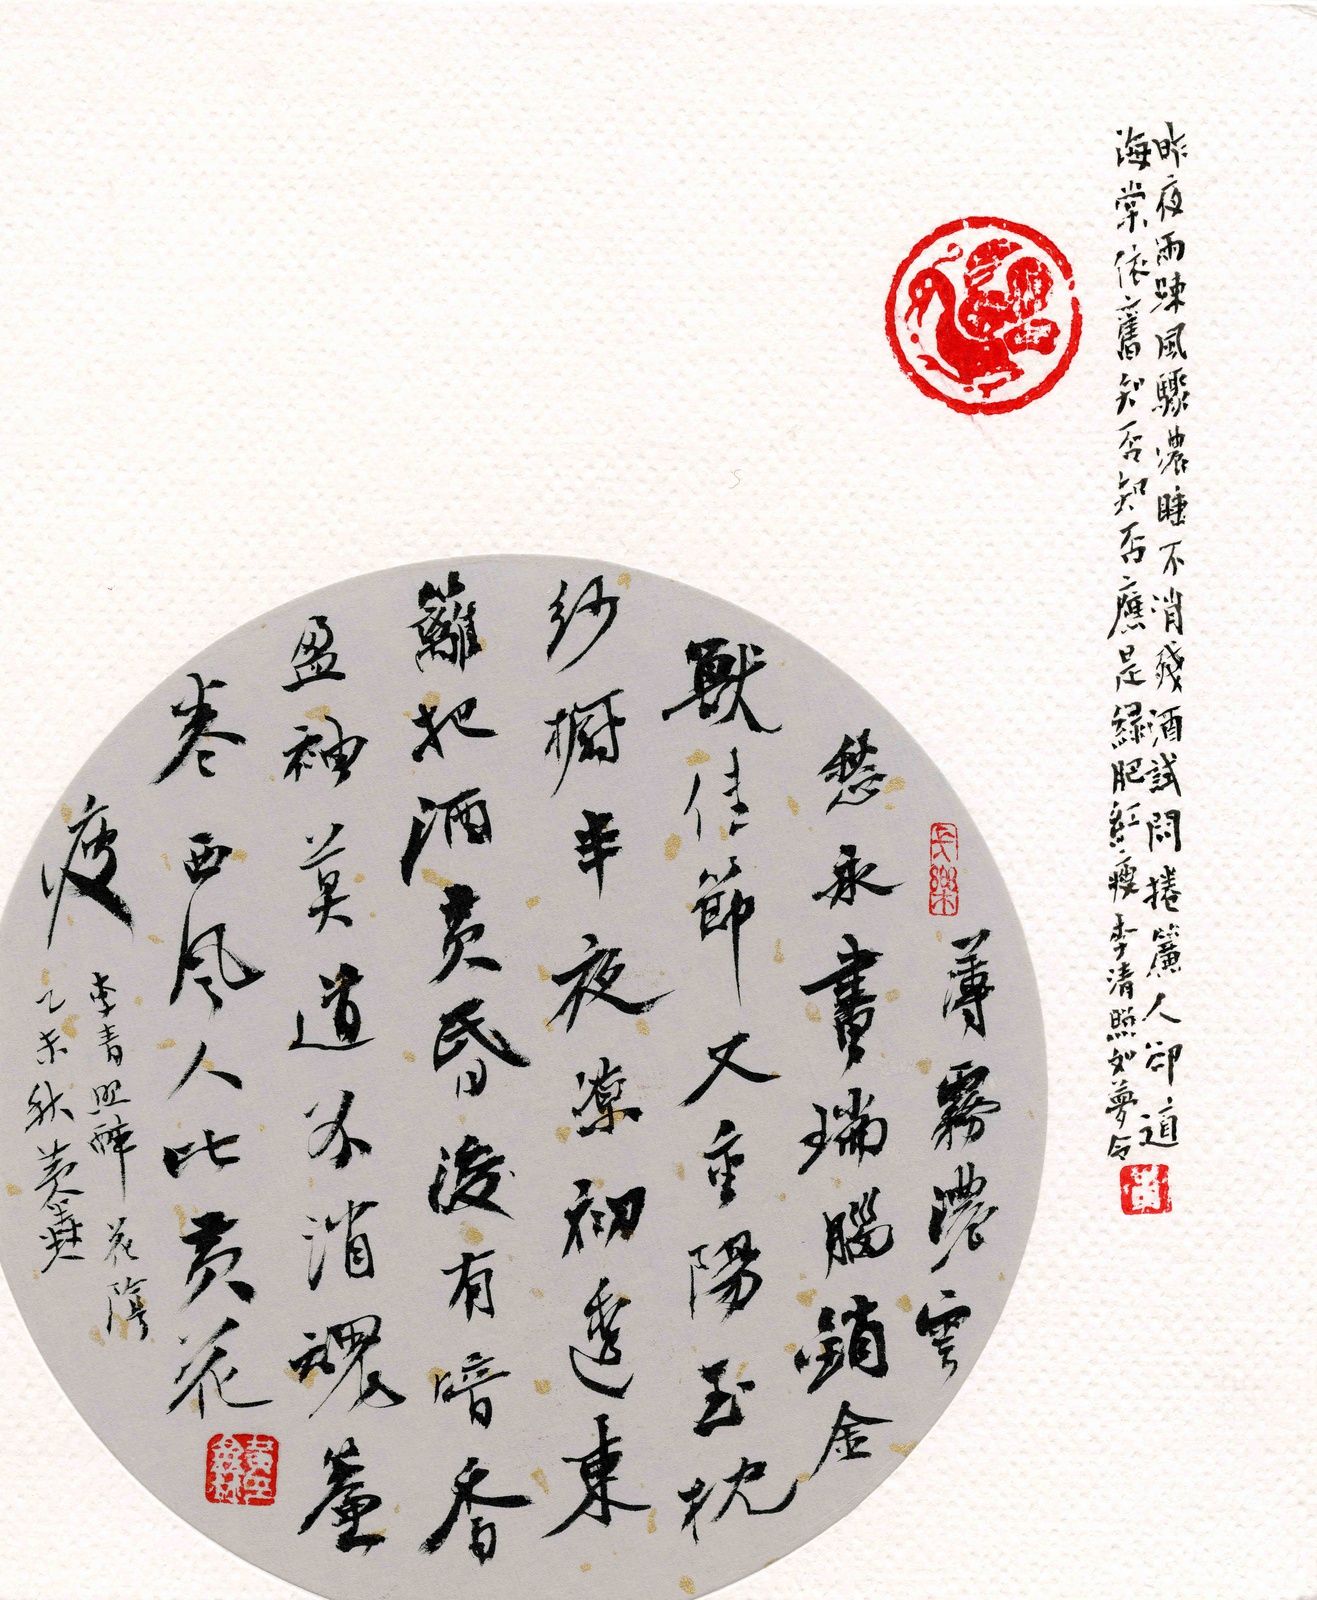 昨夜雨踈風驟濃睡不消殘酒試問捲簾人卻道
海棠依舊知否知否應是綠肥紅瘦李清照如夢令
長樂
薄霧濃雲
愁永晝瑞腦銷金
獸佳節又重陽玉枕
紗櫥半夜涼初透東
籬把酒黃昏後有暗香
盈袖莫道不消魂簾
卷西風人比黃花
瘦
李青照醉花陰
乙未秋黃